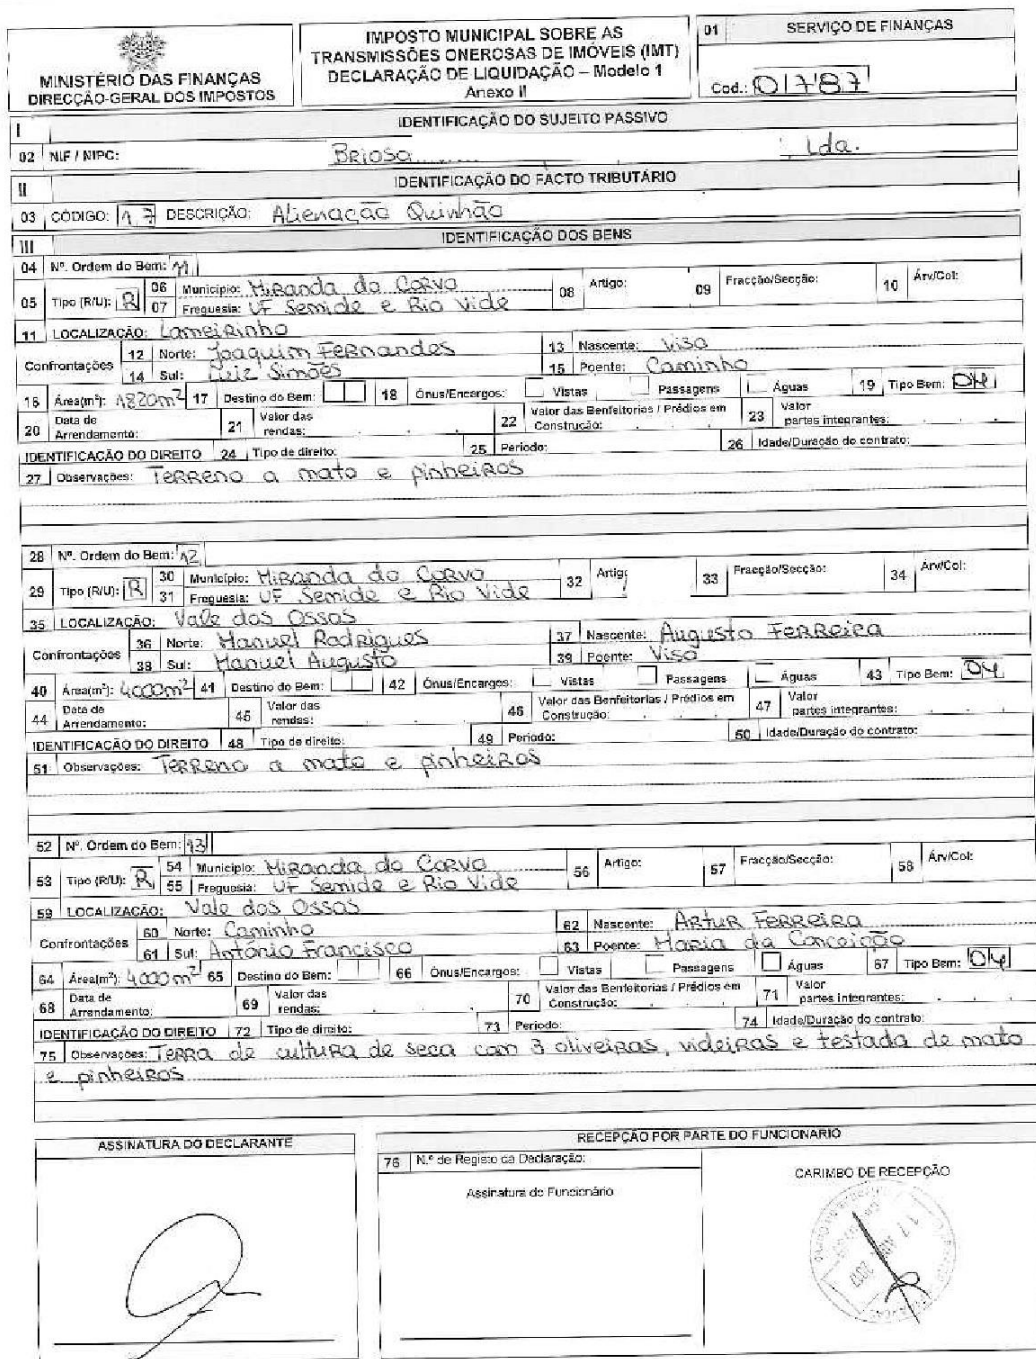 MINISTÉRIO DAS FINANÇAS
DIRECÇÃO-GERAL DOS IMPOSTOS
IMPOSTO MUNICIPAL SOBRE AS
TRANSMISSÕES ONEROSAS DE IMÓVEIS (IMT)
DECLARAÇÃO DE LIQUIDAÇÃO – Modelo 1
Anexo II
01 SERVIÇO DE FINANÇAS
Cod.: 0787
I IDENTIFICAÇÃO DO SUJEITO PASSIVO
02 NIF / NIPC: Briosa , Lda.
II IDENTIFICAÇÃO DO FACTO TRIBUTÁRIO
03 CÓDIGO: 17 DESCRIÇÃO: Alienação Quinhão
III IDENTIFICAÇÃO DOS BENS
04 Nº. Ordem do Bem: 11
05 Tipo (R/U): R 06 Município: Miranda do Corvo 08 Artigo: 09 Fracção/Secção: 10 Árv/Col:
07 Freguesia: UF Semide e Rio Vide
11 LOCALIZAÇÃO: Lameirinho
Confrontações 12 Norte: Joaquim Fernandes 13 Nascente: Viso
14 Sul: Luiz Simões 15 Poente: Caminho
16 Área(m²): 1820m² 17 Destino do Bem: 18 Ónus/Encargos: Vistas Passagens Águas 19 Tipo Bem: 04
20 Data de Arrendamento: 21 Valor das rendas: 22 Valor das Benfeitorias / Prédios em Construção: 23 Valor partes integrantes:
IDENTIFICAÇÃO DO DIREITO 24 Tipo de direito: 25 Período: 26 Idade/Duração do contrato:
27 Observações: Terreno a mato e pinheiros
28 Nº. Ordem do Bem: 12
29 Tipo (R/U): R 30 Município: Miranda do Corvo 32 Artig 33 Fracção/Secção: 34 Árv/Col:
31 Freguesia: UF Semide e Rio Vide
35 LOCALIZAÇÃO: Vale dos Ossos
Confrontações 36 Norte: Manuel Rodrigues 37 Nascente: Augusto Ferreira
38 Sul: Manuel Augusto 39 Poente: Viso
40 Área(m²): 4000m² 41 Destino do Bem: 42 Ónus/Encargos: Vistas Passagens Águas 43 Tipo Bem: 04
44 Data de Arrendamento: 45 Valor das rendas: 46 Valor das Benfeitorias / Prédios em Construção: 47 Valor partes integrantes:
IDENTIFICAÇÃO DO DIREITO 48 Tipo de direito: 49 Período: 50 Idade/Duração do contrato:
51 Observações: Terreno a mato e pinheiros
52 Nº. Ordem do Bem: 13
53 Tipo (R/U): R 54 Município: Miranda do Corvo 56 Artigo: 57 Fracção/Secção: 58 Árv/Col:
55 Freguesia: UF Semide e Rio Vide
59 LOCALIZAÇÃO: Vale dos Ossos
Confrontações 60 Norte: Caminho 62 Nascente: Artur Ferreira
61 Sul: António Francisco 63 Poente: Maria da Conceição
64 Área(m²): 4000m² 65 Destino do Bem: 66 Ónus/Encargos: Vistas Passagens Águas 67 Tipo Bem: 04
68 Data de Arrendamento: 69 Valor das rendas: 70 Valor das Benfeitorias / Prédios em Construção: 71 Valor partes integrantes:
IDENTIFICAÇÃO DO DIREITO 72 Tipo de direito: 73 Período: 74 Idade/Duração do contrato:
75 Observações: Terra de cultura de seca com 3 oliveiras, videiras e testada de mato
e pinheiros
ASSINATURA DO DECLARANTE
RECEPÇÃO POR PARTE DO FUNCIONÁRIO
76 N.º de Registo da Declaração:
Assinatura do Funcionário
CARIMBO DE RECEPÇÃO